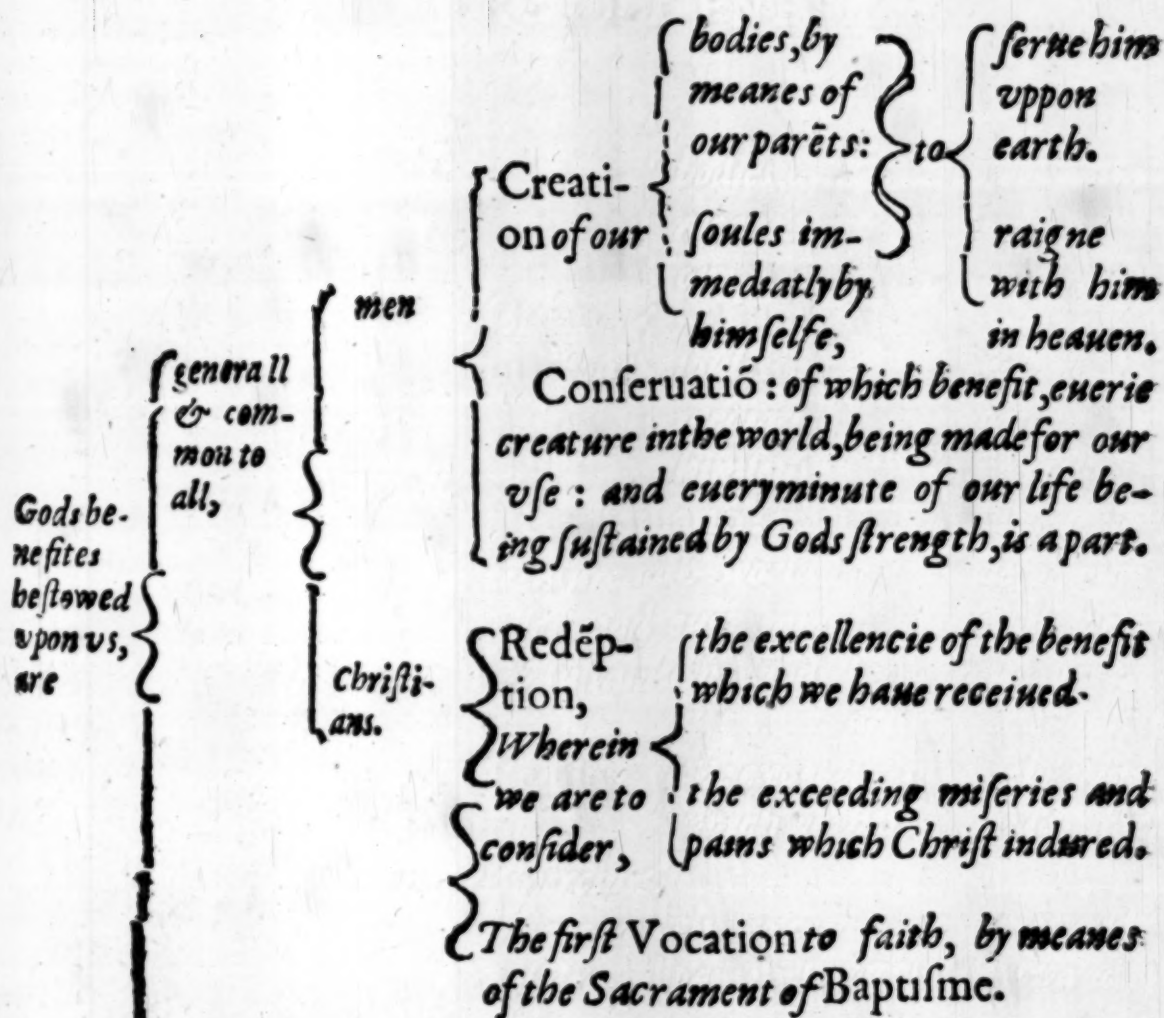 Gods be-
nefites
bestowed
vpon vs,
are
generall
& com-
mon to
all,
men
Creati-
on of our
bodies, by
meanes of
our parẽts:
ſoules im-
mediatly by
himſelfe,
to
ſerue him
vppon
earth.
raigne
with him
in heauen.
Conſeruatiõ : of which benefit, euerie
creature in the world, being made for our
vſe : and euery minute of our life be-
ing ſuſtained by Gods ſtrength, is a part.
Chriſti-
ans.
Redẽp-
tion,
Wherein
we are to
conſider,
the excellencie of the benefit
which we haue receiued.
the exceeding miſeries and
pains which Chriſt indured.
The firſt Vocation to faith, by meanes
of the Sacrament of Baptiſme.